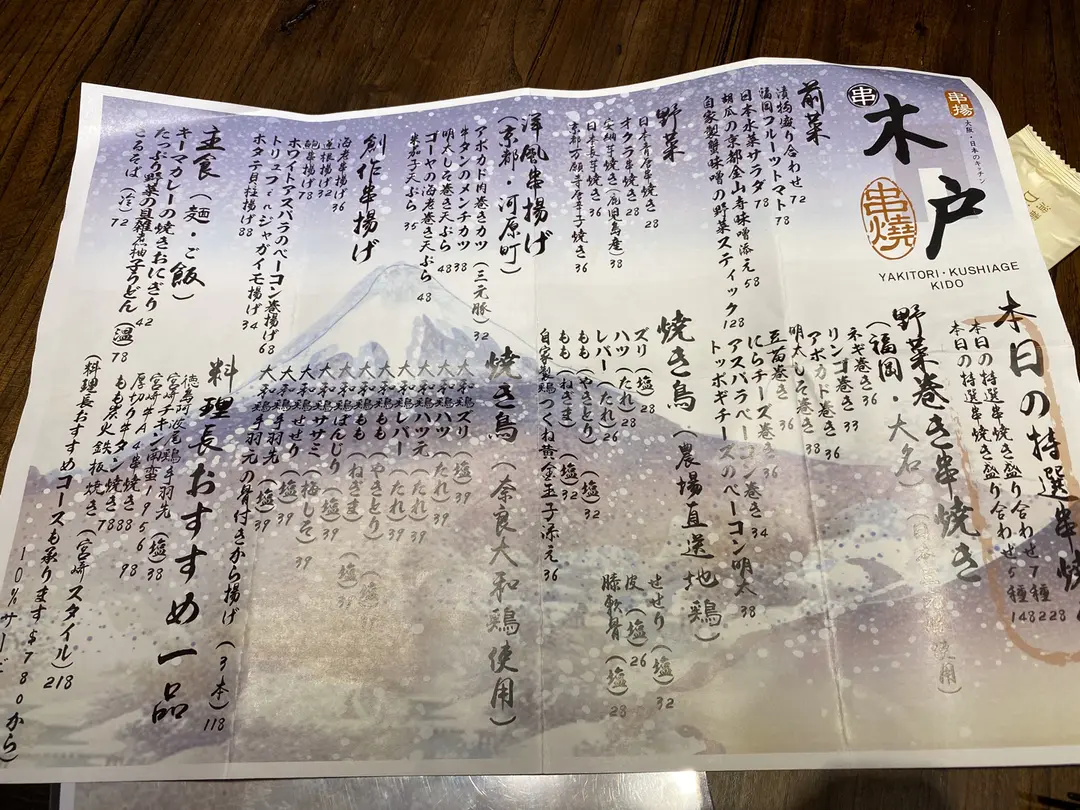 串揚
大阪・日本のキッチン
串
木戸
串燒
YAKITORI・KUSHIAGE
KIDO
本日の特選串焼
本日の特選串焼き盛り合わせ 7種 228
本日の特選串焼き盛り合わせ 5種 148
前菜
漬物盛り合わせ 72
福岡フルーツトマト 78
日本水菜サラダ 78
胡瓜の京都金山寺味噌添え 58
自家製蟹味噌の野菜スティック 128
野菜巻き串焼き
(福岡・大名)
ネギ巻き 36
リンゴ巻き 33
アボカド巻き 36
明太しそ巻き 38
豆苗巻き 36
にらチーズ巻き 36
アスパラベーコン巻き 34
トッポギチーズのベーコン明太 38
野菜
日本青唐串焼き 28
オクラ串焼き 28
安納芋串焼き(鹿児島産) 38
日本長芋串焼き 36
京都万願寺唐辛子焼き 36
焼き鳥(農場直送地鶏)
ズリ(塩) 28
ハツ(たれ) 28
レバー(たれ) 26
もも(やきとり)(塩) 32
もも(ねぎま)(塩) 32
自家製鶏つくね黄金玉子添え 36
せせり(塩) 32
皮(塩) 26
膝軟骨(塩) 28
洋風串揚げ
(京都・河原町)
アボカド肉巻きカツ(三元豚) 32
牛タンのメンチカツ 38
明太しそ巻き天ぷら 48
ゴーヤの海老巻き天ぷら 48
茶茄子天ぷら 35
焼き鳥(奈良大和鶏使用)
大和鶏ズリ(塩) 39
大和鶏ハツ(たれ) 39
大和鶏ハツ元(たれ) 39
大和鶏レバー(たれ) 39
大和鶏もも(やきとり)(塩)
大和鶏もも(ねぎま)(塩)
大和鶏ぼんじり(塩) 39
大和鶏ササミ(梅しそ) 39
大和鶏せせり(塩) 39
大和鶏手羽先(塩) 39
大和鶏手羽元の骨付きから揚げ(3本) 118
創作串揚げ
海老串揚げ 36
蓮根揚げ 32
鮑串揚げ 78
ホワイトアスパラのベーコン巻揚げ 68
トリュフ・ルジャガイモ揚げ 34
ホタテ貝柱揚げ 88
主食(麺・ご飯)
キーマカレーの焼きおにぎり 42
たっぷり野菜の具雑煮柚子うどん(温) 78
ころそば(冷) 72
料理長おすすめ一品
徳島阿波尾鶏手羽先(塩) 38
宮崎チキン南蛮 195
宮崎牛A4串焼き 88
厚切り牛タン焼き 98
もも炭火鉄板焼き(宮崎スタイル) 218
(料理長おすすめコースも承ります $780から)
10%サービ